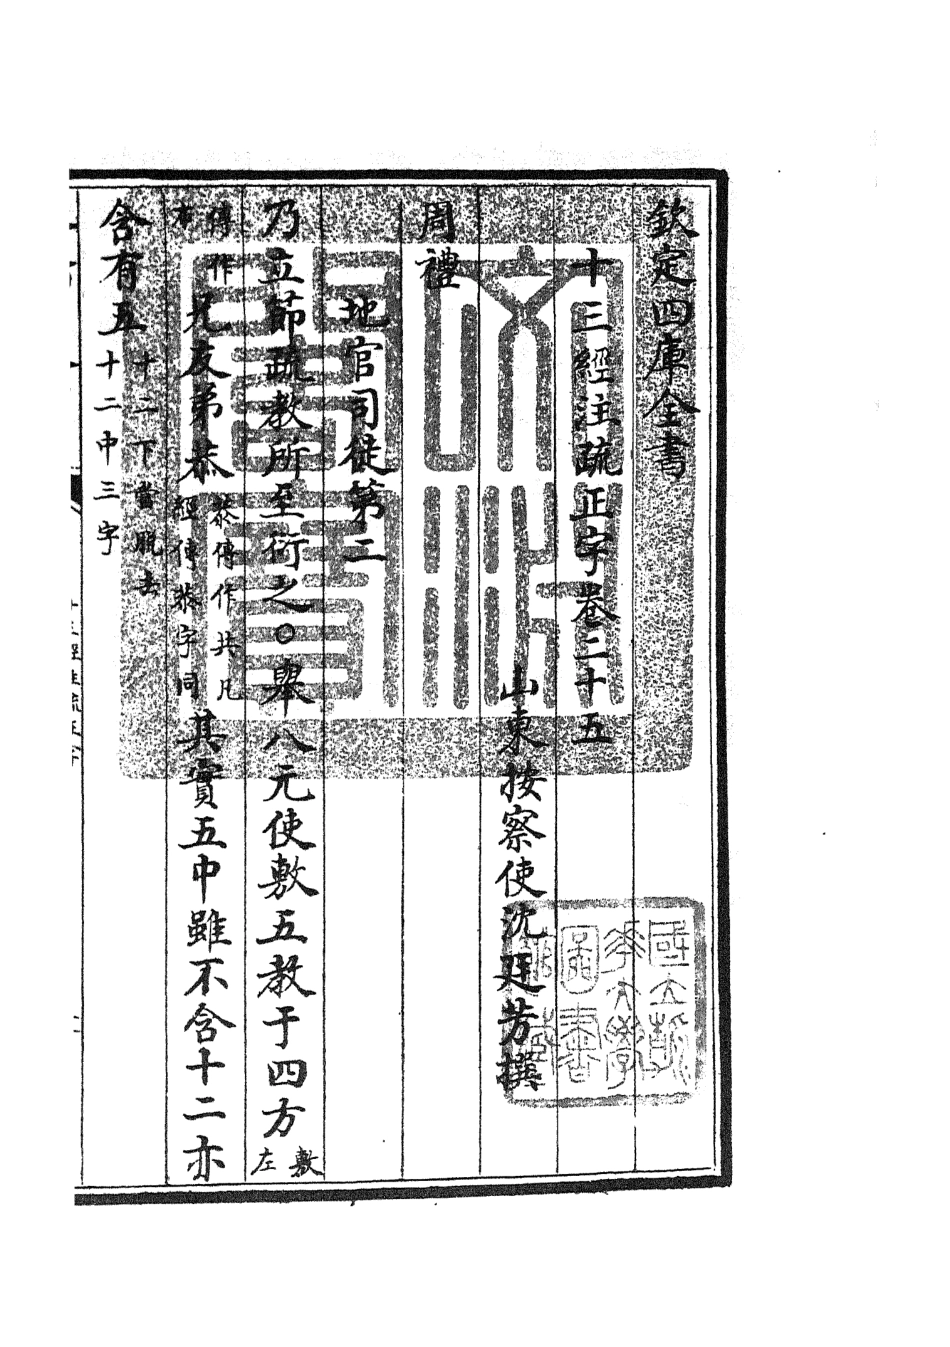 欽定四庫全書
十三經注疏正字卷二十五
山東按察使沈廷芳撰
周禮
地官司徒第二
乃立節疏教所至衍之○舉八元使敷五教于四方敷左
傳作布兄友弟恭恭傳作共凡經傳恭字同其實五中雖不含十二亦
含有五十二下當脫去十二中三字